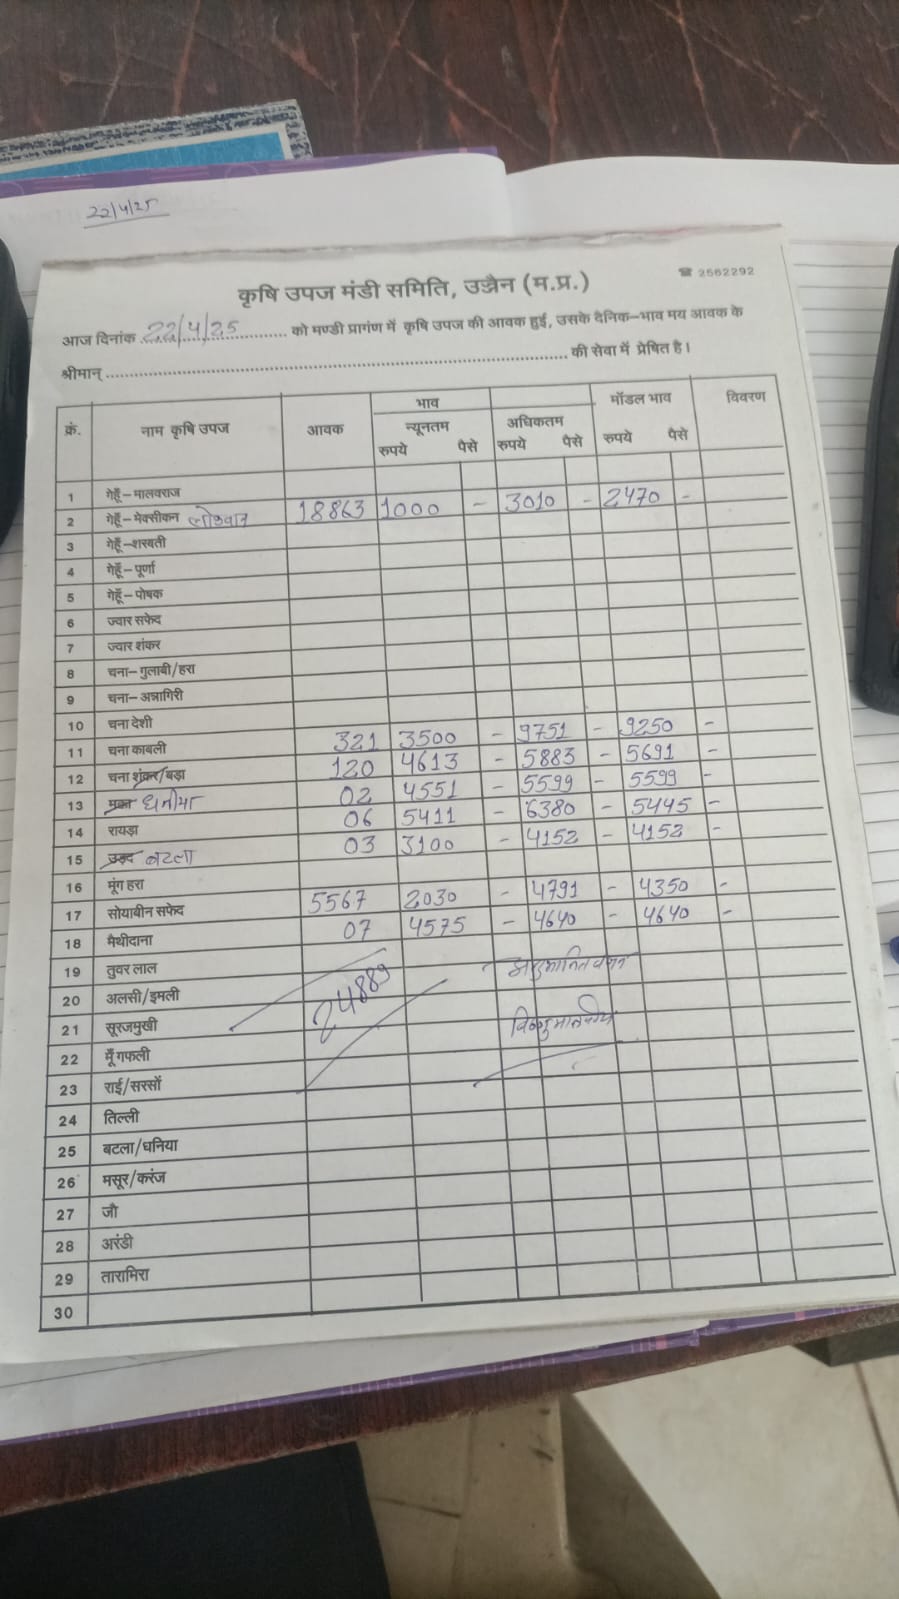 22/4/25
☎ 2562292
कृषि उपज मंडी समिति, उज्जैन (म.प्र.)
आज दिनांक 22/4/25 को मण्डी प्रागंण में कृषि उपज की आवक हुई, उसके दैनिक-भाव मय आवक के
श्रीमान् की सेवा में प्रेषित है।
क्रं. नाम कृषि उपज आवक भाव न्यूनतम रुपये पैसे अधिकतम रुपये पैसे मॉडल भाव रुपये पैसे विवरण
1 गेहूँ-मालवराज
2 गेहूँ-मेक्सीकन लोकवान 18863 1000 - 3010 - 2470 -
3 गेहूँ-शरबती
4 गेहूँ-पूर्णा
5 गेहूँ-पोषक
6 ज्वार सफेद
7 ज्वार शंकर
8 चना-गुलाबी/हरा
9 चना-अन्नागिरी
10 चना देशी
11 चना काबली 321 3500 - 9751 - 9250 -
12 चना शंकर/बड़ा 120 4613 - 5883 - 5691 -
13 मक्का धनीया 02 4551 - 5599 - 5599 -
14 रायड़ा 06 5411 - 6380 - 5445 -
15 उड़द बटला 03 3100 - 4152 - 4152 -
16 मूंग हरा
17 सोयाबीन सफेद 5567 2030 - 4791 - 4350 -
18 मैथीदाना 07 4575 - 4640 - 4640 -
19 तुवर लाल
20 अलसी/इमली 24889
21 सूरजमुखी
22 मूँगफली
23 राई/सरसों
24 तिल्ली
25 बटला/धनिया
26 मसूर/करंज
27 जौ
28 अरंडी
29 तारामिरा
30